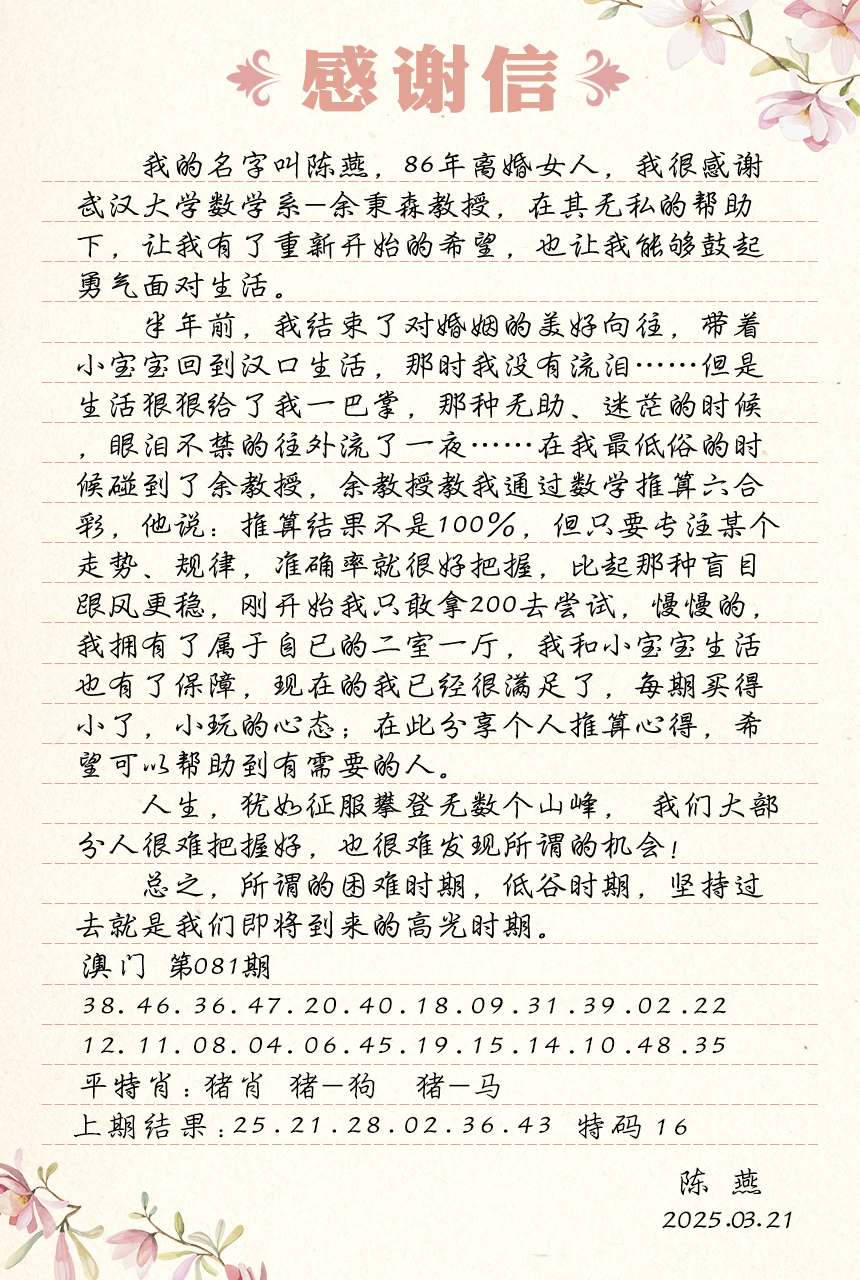 感谢信
我的名字叫陈燕，86年离婚女人，我很感谢
武汉大学数学系-余秉森教授，在其无私的帮助
下，让我有了重新开始的希望，也让我能够鼓起
勇气面对生活。
半年前，我结束了对婚姻的美好向往，带着
小宝宝回到汉口生活，那时我没有流泪……但是
生活狠狠给了我一巴掌，那种无助、迷茫的时候
，眼泪不禁的往外流了一夜……在我最低俗的时
候碰到了余教授，余教授教我通过数学推算六合
彩，他说：推算结果不是100%，但只要专注某个
走势、规律，准确率就很好把握，比起那种盲目
跟风更稳，刚开始我只敢拿200去尝试，慢慢的，
我拥有了属于自已的二室一厅，我和小宝宝生活
也有了保障，现在的我已经很满足了，每期买得
小了，小玩的心态；在此分享个人推算心得，希
望可以帮助到有需要的人。
人生，犹如征服攀登无数个山峰， 我们大部
分人很难把握好，也很难发现所谓的机会！
总之，所谓的困难时期，低谷时期，坚持过
去就是我们即将到来的高光时期。
澳门 第081期
38.46.36.47.20.40.18.09.31.39.02.22
12.11.08.04.06.45.19.15.14.10.48.35
平特肖：猪肖 猪-狗 猪-马
上期结果：25.21.28.02.36.43 特码 16
陈 燕
2025.03.21